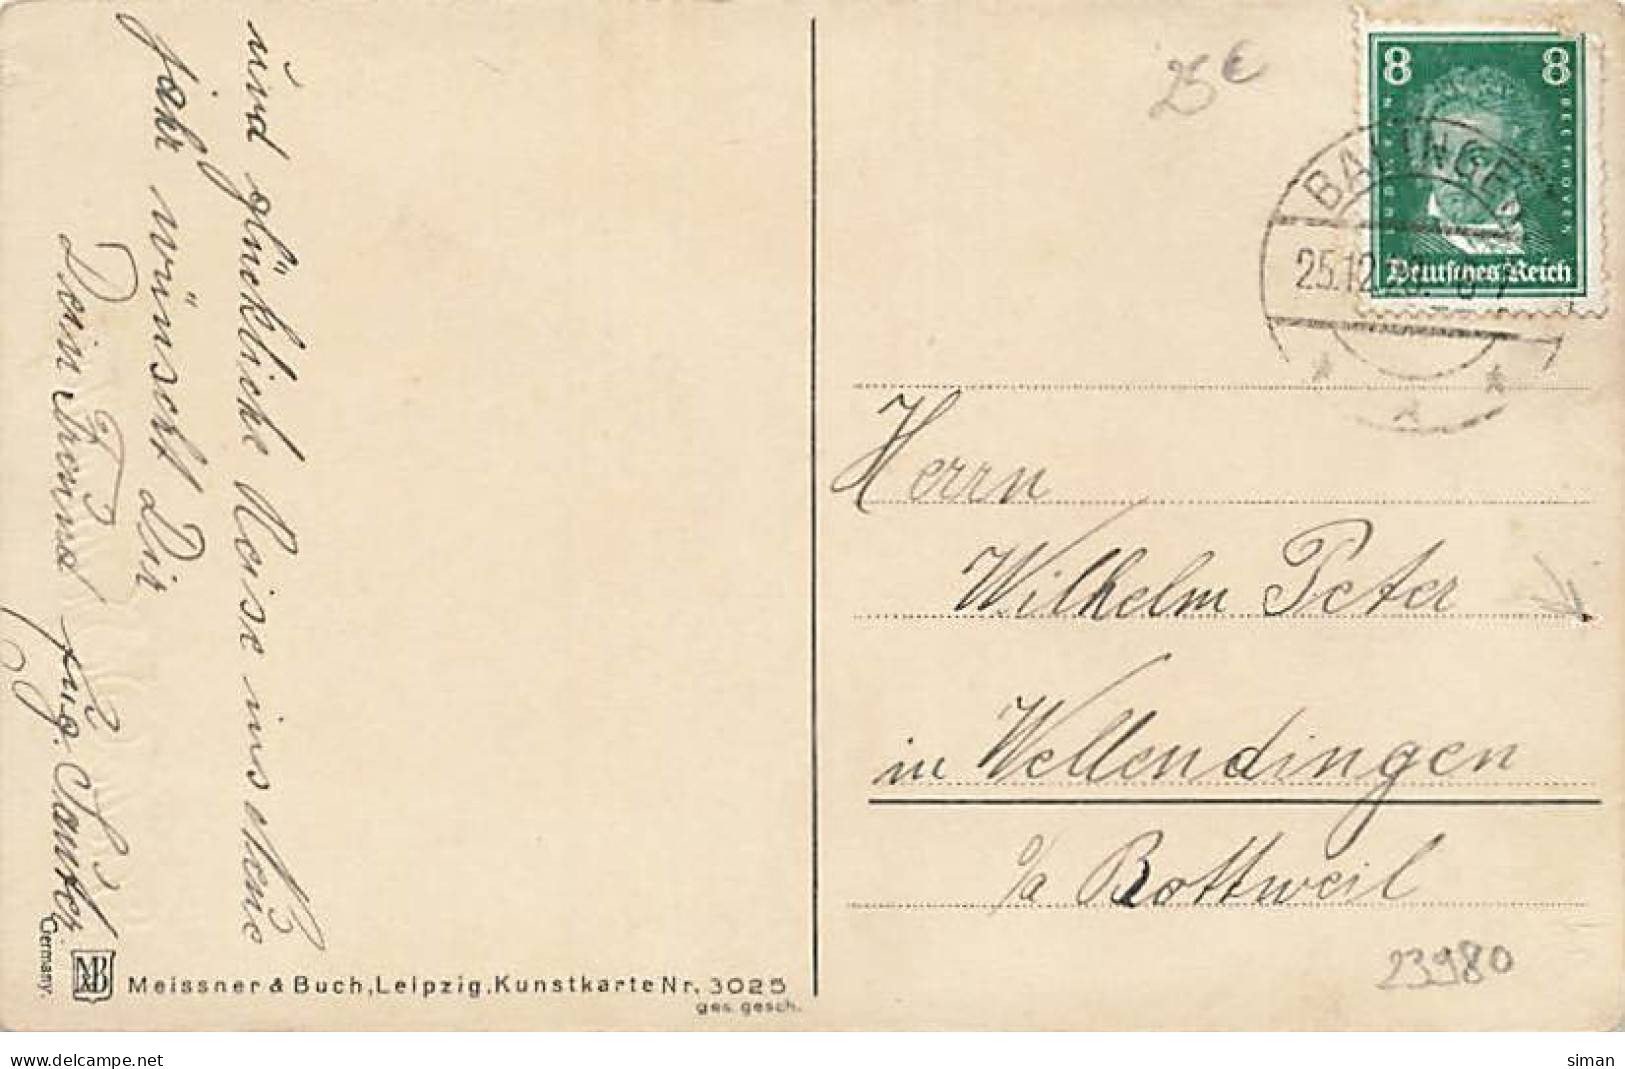 und glückliche Reise ins Neue
jahr wünscht Dir
Dein Freund
Germany.
MB
Meissner & Buch, Leipzig, Kunstkarte Nr. 3025
ges. gesch.
25 €
8 8
LUDWIG VAN BEETHOVEN
Deutsches Reich
BALINGEN
25.12.
A
Herrn
Wilhelm Peter
in Wellendingen
o/a Rottweil
23980
www.delcampe.net
siman